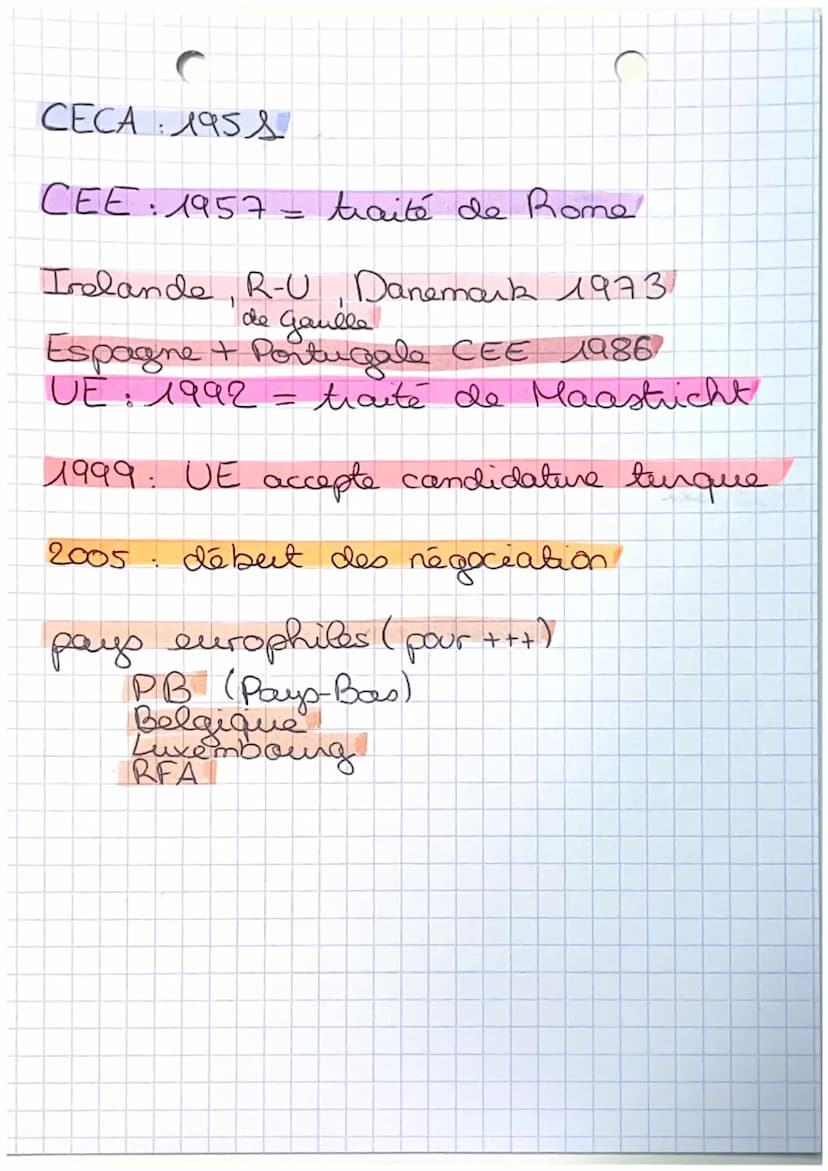 CECA : 1951
CEE : 1957 = traité de Rome
Irelande, R-U, Danemark 1973
de Gaulle
Espagne + Portugale CEE 1986
UE : 1992 = traité de Maastricht
1999 : UE accepte candidature turque
2005 : début des négociation
pays europhiles (pour +++)
PB (Pays-Bas)
Belgique
Luxembourg
RFA